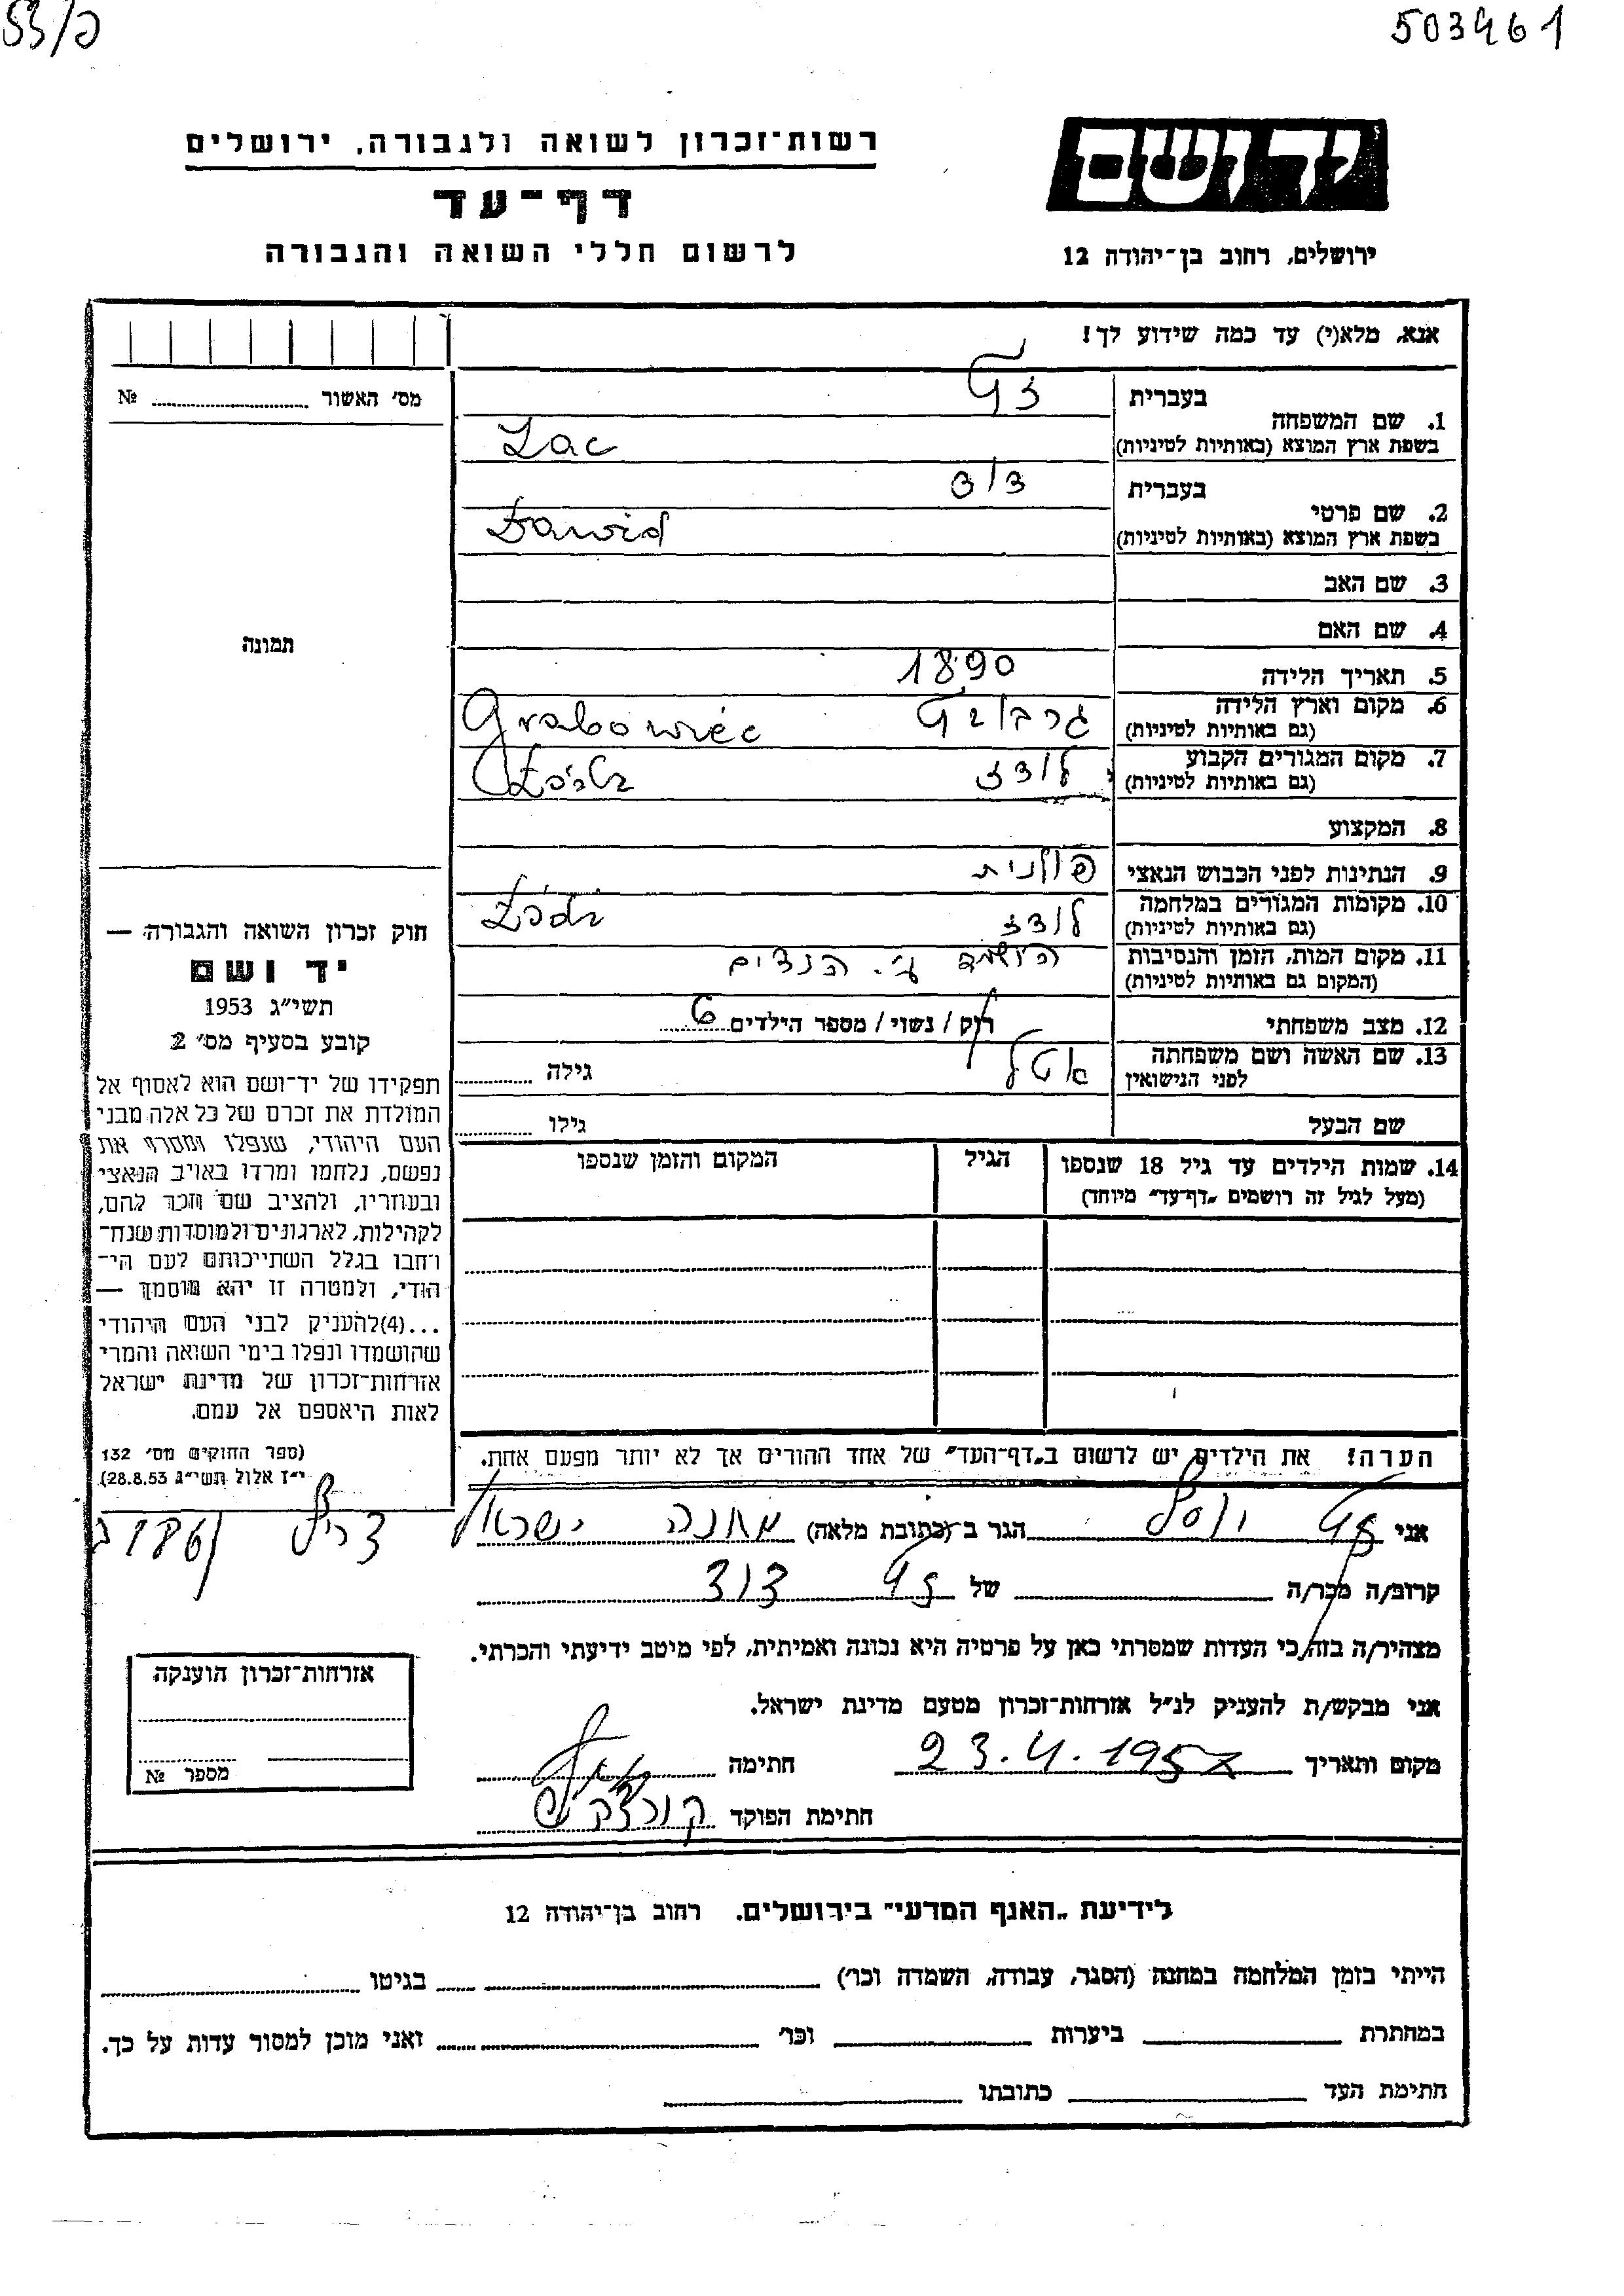 פ/55
503461
רשות־זכרון לשואה ולגבורה, ירושלים
דף־עד
לרשום חללי השואה והגבורה
יד ושם
ירושלים, רחוב בן־יהודה 12
אנא, מלא(י) עד כמה שידוע לך!
מס׳ האשור № 
תמונה
1. שם המשפחה
בעברית
זץ
בשפת ארץ המוצא (באותיות לטיניות)
Zac
2. שם פרטי
בעברית
דוד
בשפת ארץ המוצא (באותיות לטיניות)
Dawid
3. שם האב
4. שם האם
5. תאריך הלידה 1890
6. מקום וארץ הלידה
(גם באותיות לטיניות)
Grabowiec
7. מקום המגורים הקבוע לודז
(גם באותיות לטיניות)
8. המקצוע
9. הנתינות לפני הכבוש הנאצי פולנית
10. מקומות המגורים במלחמה לודז Łódź
(גם באותיות לטיניות)
11. מקום המות, הזמן והנסיבות הושמד ע״י הנצים
(המקום גם באותיות לטיניות)
12. מצב משפחתי רווק / נשוי / מספר הילדים 6
13. שם האשה ושם משפחתה אטל גילה
לפני הנישואין
שם הבעל גילו
14. שמות הילדים עד גיל 18 שנספו הגיל המקום והזמן שנספו
(מעל לגיל זה רושמים „דף־עד״ מיוחד)
הערה! את הילדים יש לרשום ב„דף־העד״ של אחד ההורים אך לא יותר מפעם אחת.
חוק זכרון השואה והגבורה —
יד ושם
תשי״ג 1953
קובע בסעיף מס׳ 2
תפקידו של יד־ושם הוא לאסוף אל
המולדת את זכרם של כל אלה מבני
העם היהודי, שנפלו ומסרו את
נפשם, נלחמו ומרדו באויב הנאצי
ובעוזריו, ולהציב שם וזכר להם,
לקהילות, לארגונים ולמוסדות שנח־
רחבו בגלל השתייכותם לעם הי־
הודי, ולמטרה זו יהא מוסמך —
...(4)להעניק לבני העם היהודי
שהושמדו ונפלו בימי השואה והמרי
אזרחות־זכרון של מדינת ישראל
לאות היאספם אל עמם.
(ספר החוקים מס׳ 132
י״ז אלול תשי״ג 28.8.53)
אני זץ יוסף הגר ב־(כתובת מלאה) מחנה ישראל צריף 186/
קרוב/ה מכר/ה של זץ דוד
מצהיר/ה בזה, כי העדות שמסרתי כאן על פרטיה היא נכונה ואמיתית, לפי מיטב ידיעתי והכרתי.
אני מבקש/ת להעניק לנ״ל אזרחות־זכרון מטעם מדינת ישראל.
מקום ותאריך 23.4.1957 חתימה
חתימת הפוקד
אזרחות־זכרון הוענקה
מספר №
לידיעת „האגף המדעי״ בירושלים. רחוב בן־יהודה 12
הייתי בזמן המלחמה במחנה (הסגר, עבודה, השמדה וכו׳) בגיטו
במחתרת ביערות וכו׳ ואני מוכן למסור עדות על כך.
חתימת העד כתובתו